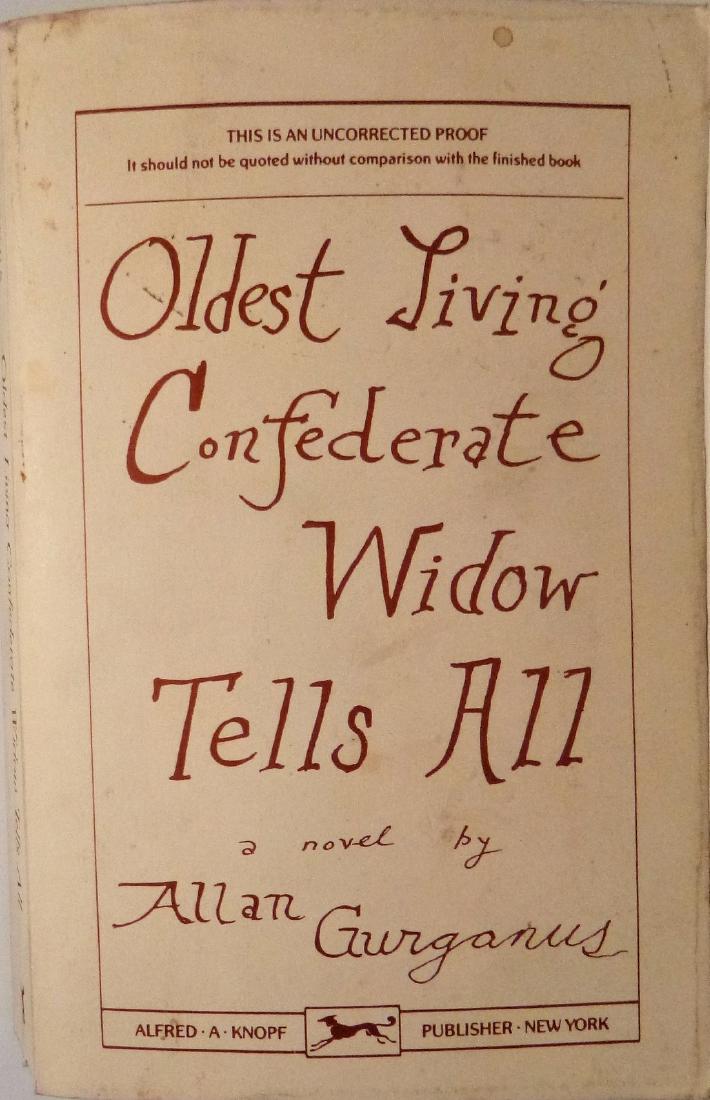 THIS IS AN UNCORRECTED PROOF
It should not be quoted without comparison with the finished book
Oldest Living
Confederate
Widow
Tells All
a novel by
Allan Gurganus
ALFRED · A · KNOPF PUBLISHER · NEW YORK
Oldest Living Confederate Widow Tells All